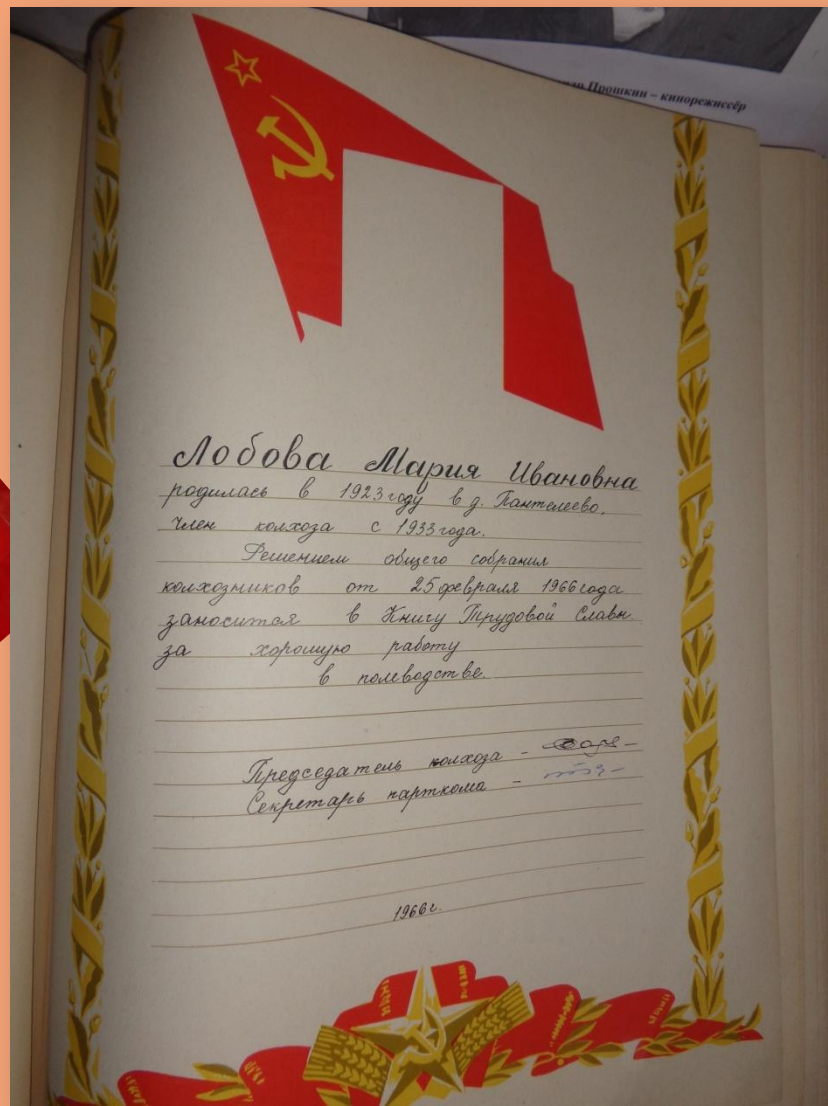 ар Прошкин – кинорежиссёр
Лобова Мария Ивановна
родилась в 1923 году в д. Пантелеево.
Член колхоза с 1933 года.
Решением общего собрания
колхозников от 25 февраля 1966 года
заносится в Книгу Трудовой Славы
за хорошую работу
в полеводстве.
Председатель колхоза –
Секретарь парткома –
1966 г.